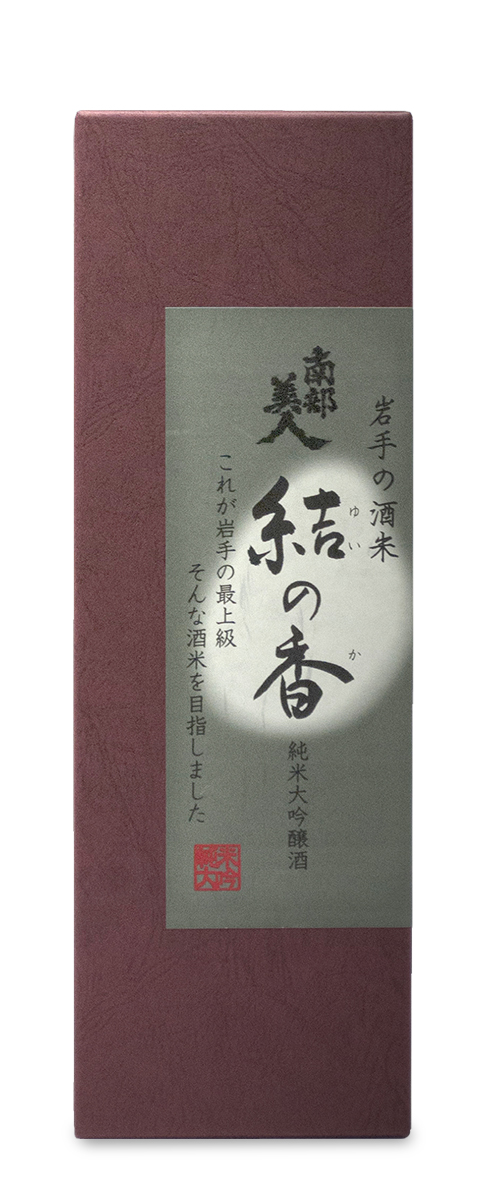 岩手の酒米
南部
美人
結の香
ゆい
か
純米大吟醸酒
これが岩手の最上級
そんな酒米を目指しました
純米
大吟